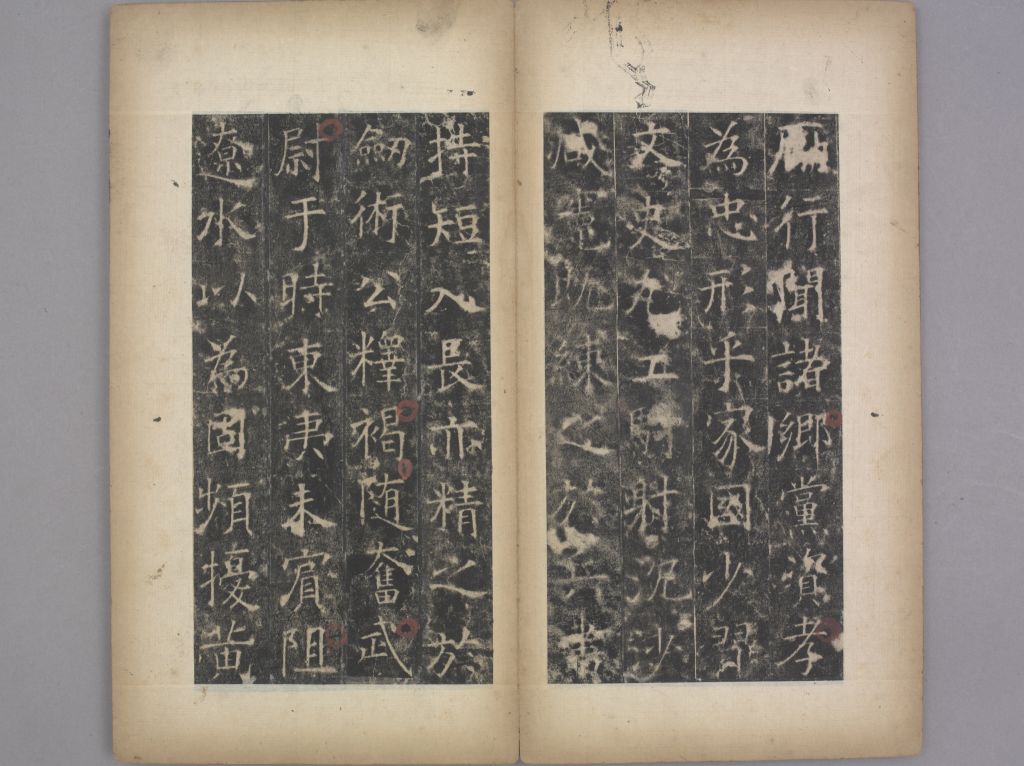 厲行聞諸鄉黨資孝
為忠形乎家國少習
文史尤五射泥沙
咸既練之於兵書
持短入長亦精之於
劒術公釋褐随奮武
尉于時東夷未賓阻
遼水以為固頻擾黃